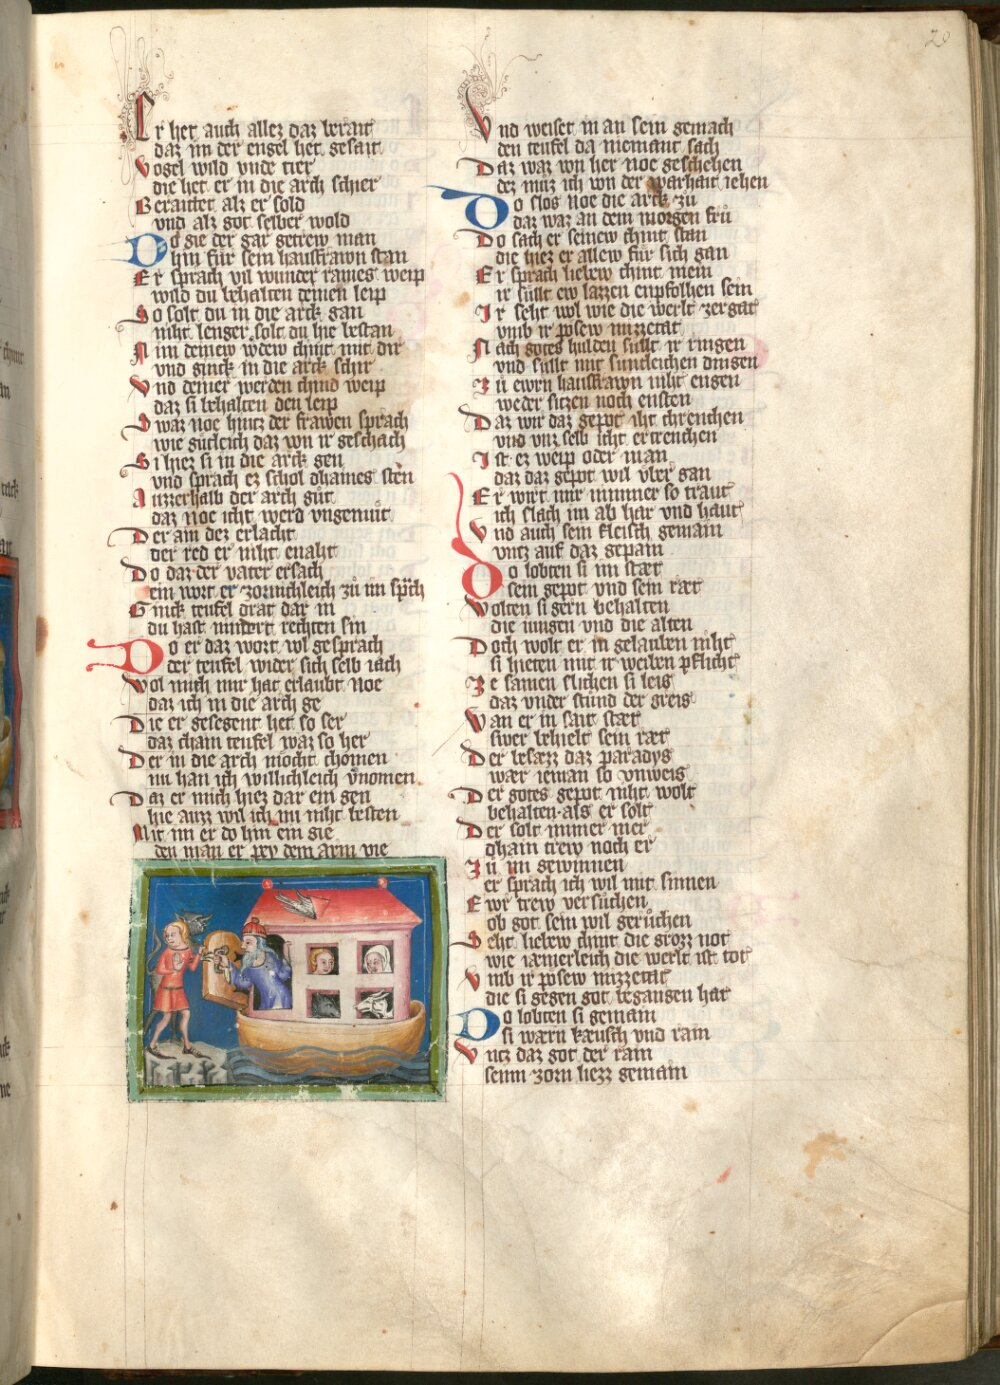 20
Er het auch allez daz berait
daz im der engel het gesait
Vogel wild vnde tier
die het er in die arch schier
Beraittet alz er sold
vnd alz got selber wold
Do gie der gar getrew man
hin für sein hausfrawn stan
Er sprach vil wunder raines weip
wild du behalten deinen leip
So solt du in die arck gan
niht lenger solt du hie bestan
Nim deinew chint mit dir
vnd ginck in die arck schir
Vnd deiner werden chind weip
daz si behalten den leip
waz noe hintz der frawen sprach
wie gütleich daz von ir geschach
Si hiez si in die arck gen
vnd sprach ez schol dhaines sten
Auzzerhalb der arch güt
daz noe icht werd vngemuit
Der ain dez erlacht
der red er niht enaht
Do daz der vater ersach
ein wort er zornichleich zů im sprach
Ginck teufel drat dar in
du hast nindert rechten sin
Do er daz wort wl gesprach
der teufel wider sich selb iach
Wol mich mir hat erlaubt noe
daz ich in die arch ge
Die er gesegent het so ser
daz chain teufel waz so her
Der in die arch mocht chomen
nu han ich willichleich vernomen
Daz er mich hiez dar ein gen
hie auzz wil ich nu niht besten
Mit im er do hin ein gie
den man er pey dem arm vie
Vnd weiset in an sein gemach
den teufel da niemant sach
Daz waz von her noe geschehen
dez muz ich von der warhait iehen
Do slos noe die arck zu
daz waz an dem morgen frü
Do sach er seinew chint stan
die hiez er allew für sich gan
Er sprach liebew chint mein
ir süllt ew lazzen enpfolhen sein
Ir seht wol wie die werlt zergat
vmb ir posew mizzetat
Nach gotes hulden süllt ir ringen
vnd süllt mit suntleichen dingen
Zu ewrn hausfrawn niht eugen
weder sitzen noch ensten
Daz wir daz gepot iht chrenchen
vnd vnz selb icht ertrenchen
Ist ez weip oder man
daz daz gepot wil vber gan
Er wirt mir nimmer so traut
ich slach im ab har vnd haut
Vnd auch sein fleisch gemain
vntz auf daz gepain
Do lobten si im stæt
sein gepot vnd sein ræt
Wolten si gern behalten
die iungen vnd die alten
Doch wolt er in gelauben niht
si hieten mit ir weiben pflicht
Ze samen slichen si leis
daz vnder stünd der greis
Wan er in sait stæt
swer behielt sein ræt
Der besæzz daz paradys
wær ieman so vnweis
Der gotes gepot niht wolt
behalten als er solt
Der solt nimer mer
dhain trew noch er
Zu im gewinnen
er sprach ich wil mit sinnen
Ewr trew versüchen
ob got sein wil gerůchen
Seht liebew chint die grozz not
wie iæmerleich die werlt ist tot
Vmb ir posew mizzetat
die si gegen got begangen hat
Do lobten si gemain
si wærn kæusch vnd rain
Vntz daz got der rain
seinn zorn liezz gemain